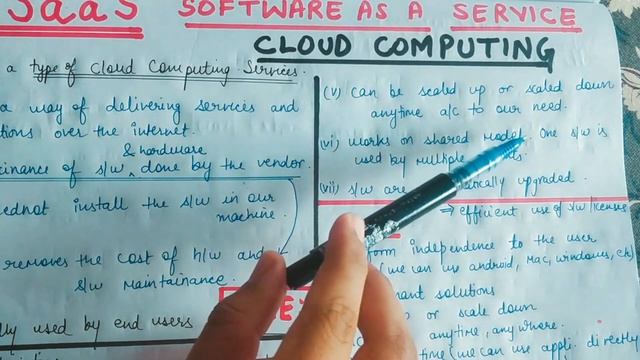 SaaS SOFTWARE AS A SERVICE
CLOUD COMPUTING
a type of Cloud Computing Services.
a way of delivering services and
tions over the internet.
& hardware
tinance of s/w done by the vendor.
ednot install the s/w in our
machine.
removes the cost of h/w and
s/w Maintainance.
used by end users
(v) can be scaled up or scaled down
anytime a/c to our need.
(vi) works on shared model. One s/w is
used by multiple
(vii) s/w are
upgraded.
⇒ efficient use of s/w license
form independence to the user
(we can use android, Mac, windows, etc)
solutions
up or scale down
anytime, anywhere.
time we can use appli. directly